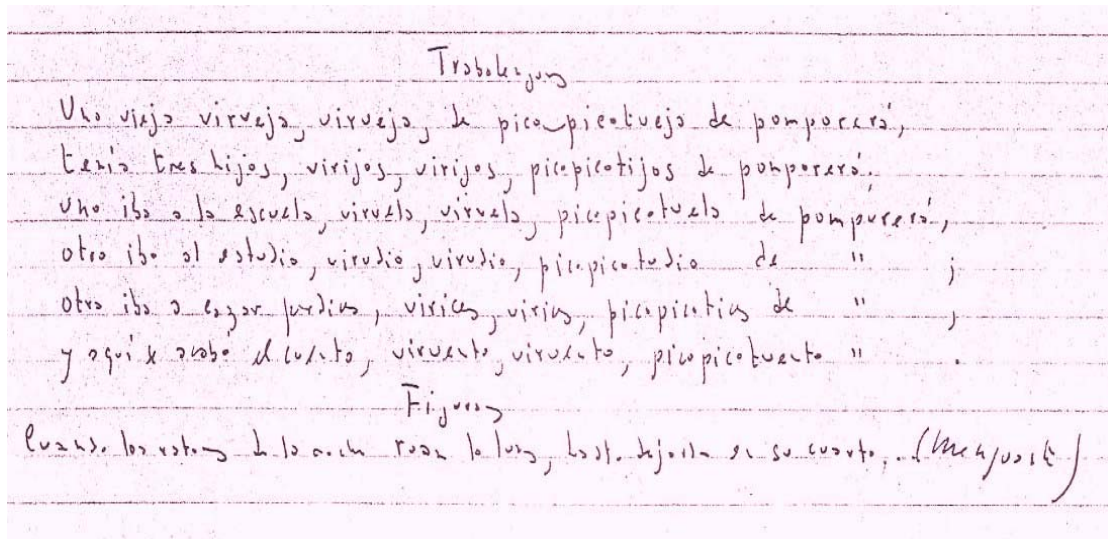 Trabalenguas
Una vieja virueja, virueja, de pico picotueja de pomporerá,
tenía tres hijos, virijos, virijos, picopicotijos de pomporerá.
Uno iba a la escuela, viruela, viruela, picopicotuela de pomporerá,
otro iba al estudio, virudio, virudio, picopicotudio de " ;
otro iba a cazar perdices, virices, virices, picopicotices de " ;
y aquí se acabó el cuento, viruento, viruento, picopicotuento " .
Figuras
Cuando los ratones de la noche roan la luna, hasta dejarla en su cuarto... (Menguante)